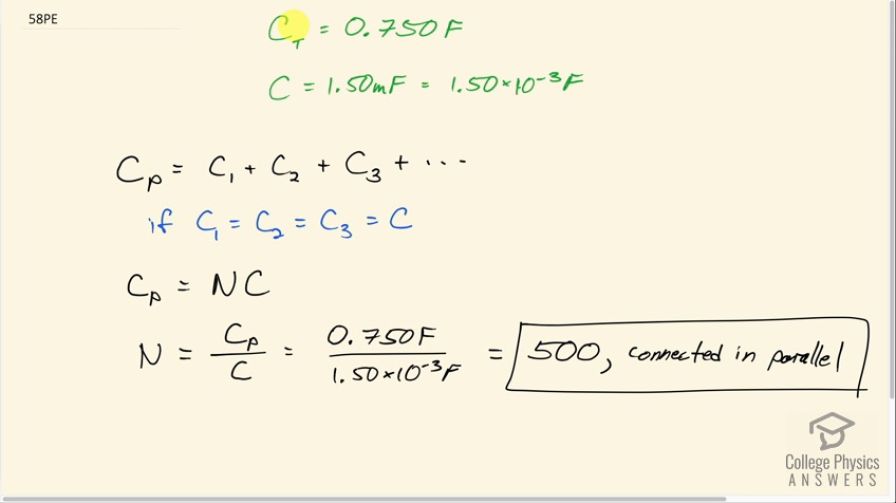 58PE
C_T = 0.750 F
C = 1.50mF = 1.50×10⁻³F
C_p = C₁ + C₂ + C₃ + ...
if C₁ = C₂ = C₃ = C
C_p = NC
N = C_p / C = 0.750F / 1.50×10⁻³F = 500, connected in parallel
College Physics
ANSWERS